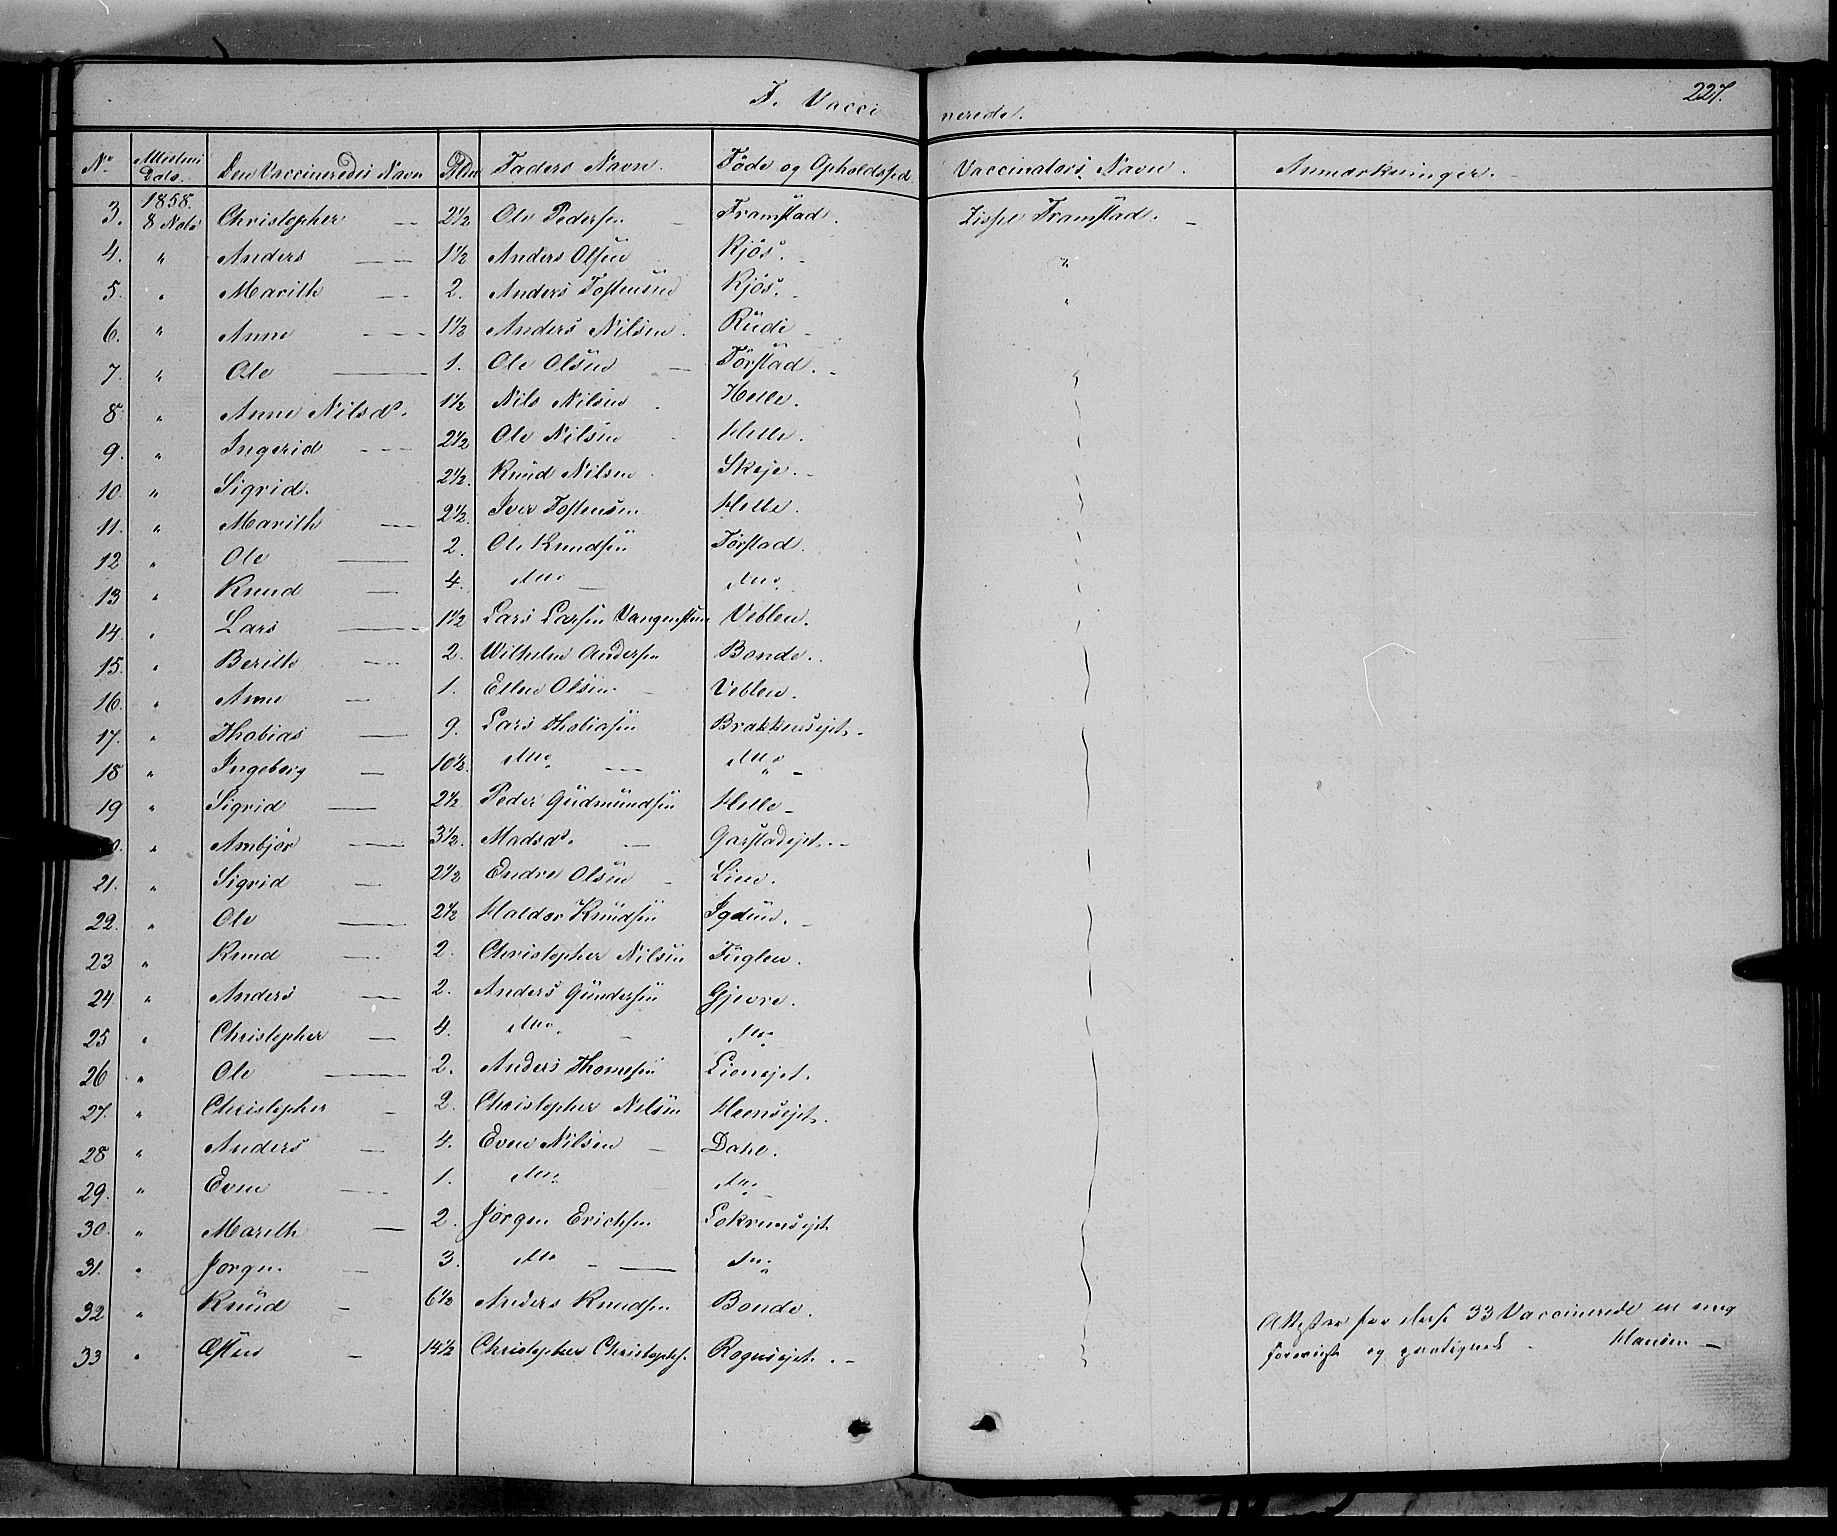 227.
F. Vaccinerede.
No Attestens Dato. Den Vaccineredes Navn Alder Faders Navn. Føde og Opholdssted Vaccinators Navn. Anmærkninger.
1858.
3. 8 Christopher 2½ Ole Pedersen Framstad. Framstad.
4. " Anders 1½ Anders Olsen Kjös. "
5. " Marith 2. Anders Tostensen Kjös. "
6. " Anne 1½ Anders Nilsen. Rude
7. " Ole 1. Ole Olsen Förstad.
8. " Anne Nilsd. 1½ Nils Nilsen Helle.
9. " Ingerid 2½ Ole Nilsen Helle.
10. " Sigrid. 2½ Knud Nilsen Skeje.
11. " Marith 2½ Iver Tostensen Helle.
12 " Ole 2. Ole Knudsen Förstad.
13 " Knud 4. do do
14. " Lars 1½ Lars Larsen Vangensteen Veblen.
15. " Berith 2. Wilhelm Andersen Bonde.
16. " Anne 1. Ellen Olsen Veblen.
17. " Thobias 9. Lars Thobiasen Brakkensejet.
18 " Ingeborg 10½. do do
19 " Sigrid 2½ Peder Gudmundsen Helle
" Ambjør 3½. Madsd. Garstadejet.
21. " Sigrid 2½ Endre Olsen Lien.
22. " Ole 2½ Haldor Knudsen Igdun.
23 " Knud 2. Christopher Nilsen Fuglen.
24 " Anders 2. Anders Gundersen Gjevre.
25 " Christopher 4. do do
26 " Ole 2. Anders Thomesen Lionejet.
27. " Christopher 2. Christopher Nilsen Heensejet.
28 " Anders 4. Even Nilsen Dahl.
29. " Even 1. do do
30. " Marith 2. Jörgen Erichsen Lokrensejet
31. " Jörgen 3. do do
32 " Knud 6½ Anders Knudsen Bonde.
33 " Østen 14½ Christopher Christophs. Rognsejet.
Attester for disse 33 Vaccinerede ere mig
foreviste og Hansen